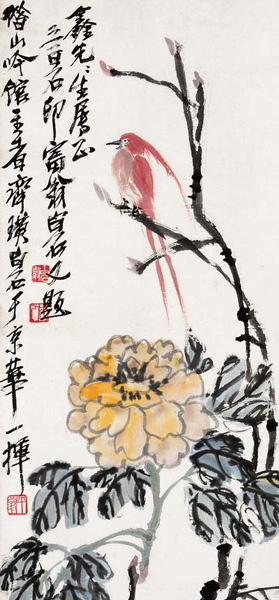 鑫先生属正
三百石印富翁白石又题
借山吟馆主者齊璜白石于京華一揮